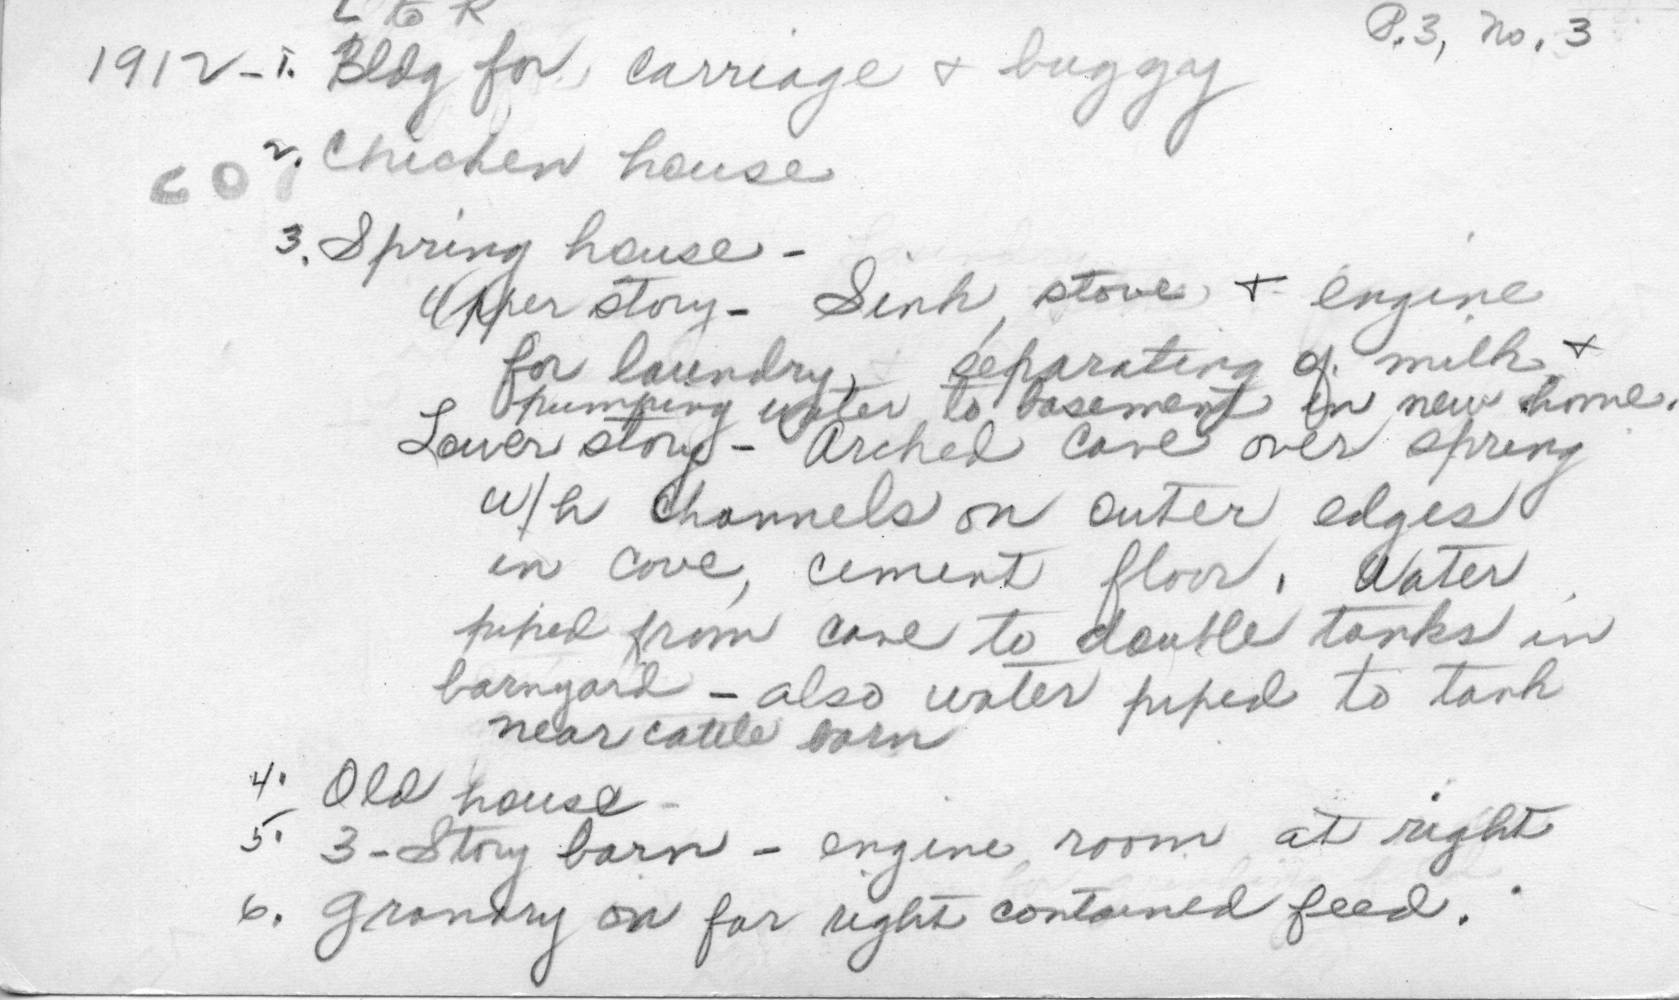 L to R
P.3, No. 3
1912 - 1. Bldg for carriage + buggy
2. Chicken house
60
3. Spring house -
Upper story - Sink, stove, + engine
for laundry, separating of milk +
pumping water to basement in new home.
Lower story - Arched cave over spring
w/h channels on outer edges
in cave, cement floor. Water
piped from cave to double tanks in
barnyard - also water piped to tank
near cattle barn
4. Old house -
5. 3-Story barn - engine room at right
6. Granary on far right contained feed.